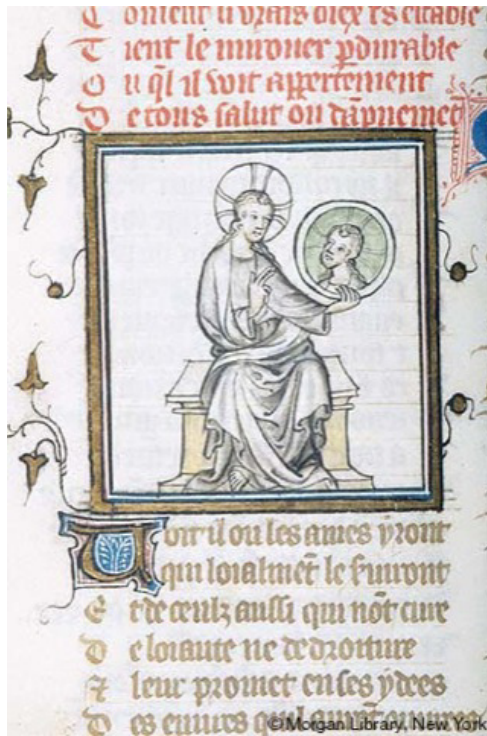 C oment li vrais diex
T ient le mirouer pdurable
O u ql il voit appertement
D e tous salut ou dāpnemēt
V oit il ou les ames yront
qui loialmēt le
E t de ceulz aussi qui nōt cure
D e loiaute ne de droiture
A leur promet en ses ydees
D es euures
©Morgan Library, New York